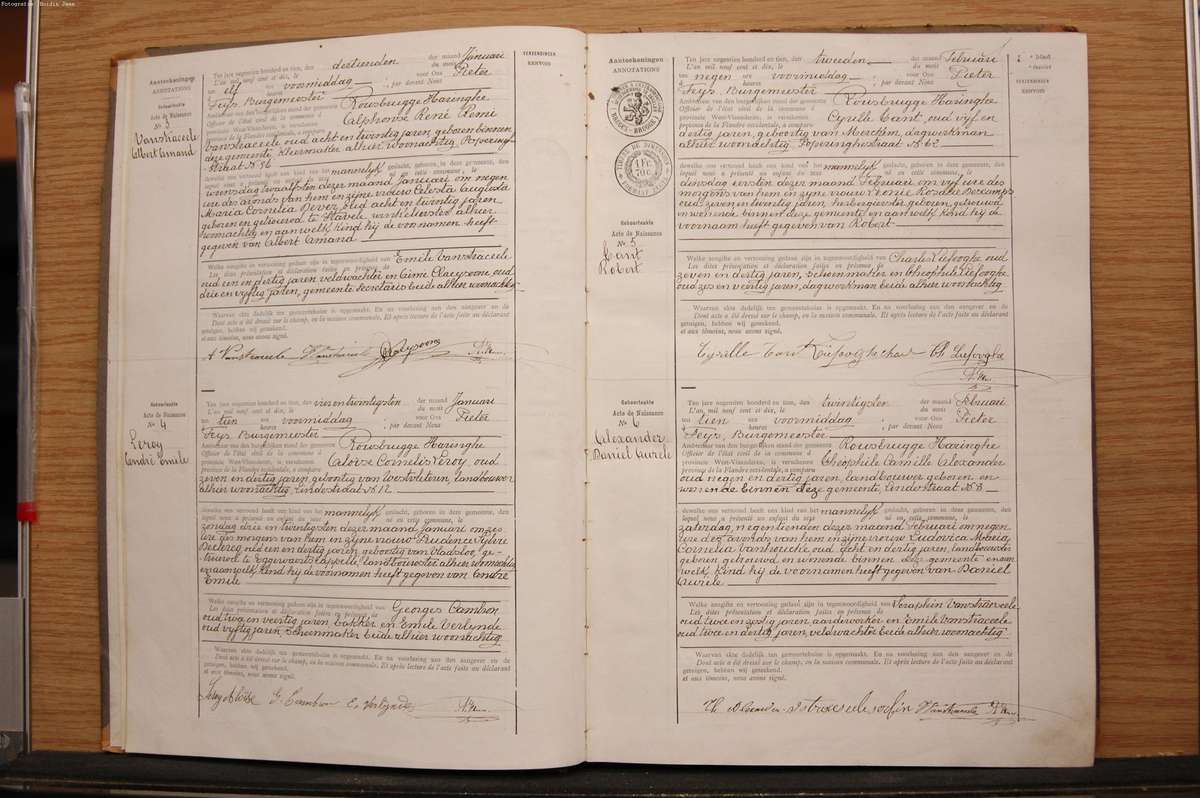 Fotografie: Boidin Jean
Aanteekeningen
ANNOTATIONS
Geboorteakte
Acte de Naissance
N. 3
Vanstraceele
Albert Amand
VERZENDINGEN
RENVOIS
Ten jare negentien honderd en tien, den dertienden der maand Januari
L'an mil neuf cent et dix, le du mois
te elf ure voormiddag voor Ons Pieter
à heures par devant Nous
Feys Burgemeester
Ambtenaar van den burgerlijken stand der gemeente Rousbrugge Haringhe
Officier de l'état civil de la commune d
provincie West-Vlaanderen, is verschenen Alphonse René Remi
province de la Flandre occidentale, a comparu
Vanstraceele oud acht en twintig jaren, geboren binnen
deze gemeente, kleermaker alhier woonachtig, Poperinge
straat N. 56
dewelke ons vertoond heeft een kind van het mannelijk geslacht, geboren in deze gemeente, den
lequel nous a présenté un enfant du sexe né en cette commune, le
woensdag twaalfsten dezer maand Januari om negen
ure des avonds van hem en zijne vrouw Celesta Augusta
Maria Cornelia Deroz, oud acht en twintig jaren
geboren en getrouwd te Stavele winkelierster alhier
woonachtig en aan welk kind hij de voornamen heeft
gegeven van Albert Amand
Welke aangifte en vertooning gedaan zijn in tegenwoordigheid van Emile Vanstraceele
Les dites présentation et déclaration faites en présence de
oud een en dertig jaren veldwachter en Aimé Claeysoone oud
drie en vijftig jaren, gemeente secretaris beide alhier woonachtig
Waarvan akte dadelijk ten gemeentehuize is opgemaakt. En na voorlezing aan den aangever en de
Dont acte a été dressé sur le champ, en la maison communale. Et après lecture de l'acte faite au déclarant
getuigen, hebben wij geteekend.
et aux témoins, nous avons signé.
A Vanstraceele E Vanstraceele Claeysoone P. Feys
Geboorteakte
Acte de Naissance
N. 4
Leroy
André Emile
Ten jare negentien honderd en tien, den vierentwintigsten der maand Januari
L'an mil neuf cent et dix, le du mois
te tien ure voormiddag voor Ons Pieter
à heures par devant Nous
Feys Burgemeester
Ambtenaar van den burgerlijken stand der gemeente Rousbrugge Haringhe
Officier de l'état civil de la commune d
provincie West-Vlaanderen, is verschenen Aloïse Cornelis Leroy, oud
province de la Flandre occidentale, a comparu
zeven en dertig jaren geboortig van Westvleteren, landbouwer
alhier woonachtig, Lindestraat N. 12
dewelke ons vertoond heeft een kind van het mannelijk geslacht, geboren in deze gemeente, den
lequel nous a présenté un enfant du sexe né en cette commune, le
zondag drie en twintigsten dezer maand Januari om zes
ure des morgens van hem en zijne vrouw Prudence Sylvie
Declercq oud een en dertig jaren, geboortig van Vladsloo, ge-
trouwd te Eggewaertscappelle, landbouwster alhier woonachtig
en aan welk kind hij de voornamen heeft gegeven van André
Emile
Welke aangifte en vertooning gedaan zijn in tegenwoordigheid van Georges Cambron
Les dites présentation et déclaration faites en présence de
oud twee en veertig jaren, bakker en Emile Verlynde
oud vijftig jaren, schoenmaker beide alhier woonachtig
Waarvan akte dadelijk ten gemeentehuize is opgemaakt. En na voorlezing aan den aangever en de
Dont acte a été dressé sur le champ, en la maison communale. Et après lecture de l'acte faite au déclarant
getuigen, hebben wij geteekend.
et aux témoins, nous avons signé.
Leroy Aloïse G. Cambron E. Verlynde P. Feys
Aanteekeningen
ANNOTATIONS
BRUGES - BRUGGE
TIMBRE DE DIMENSION
1 FR.
70 C.
Geboorteakte
Acte de Naissance
N. 5
Cant
Robert
VERZENDINGEN
RENVOIS
Ten jare negentien honderd en tien, den tweeden der maand Februari
L'an mil neuf cent et dix, le du mois
te negen ure voormiddag voor Ons Pieter
à heures par devant Nous
Feys, Burgemeester
Ambtenaar van den burgerlijken stand der gemeente Rousbrugge Haringhe
Officier de l'état civil de la commune d
provincie West-Vlaanderen, is verschenen Cyrille Cant, oud vijf en
province de la Flandre occidentale, a comparu
dertig jaren, geboortig van Merckem, dagwerkman
alhier woonachtig, Poperinghestraat N. 62
dewelke ons vertoond heeft een kind van het mannelijk geslacht, geboren in deze gemeente, den
lequel nous a présenté un enfant du sexe né en cette commune, le
dinsdag eersten dezer maand Februari om vijf ure des
morgens van hem en zijne vrouw Leonie Rosalie Bercamps
oud zeven en twintig jaren, herbergierster geboren, getrouwd
en wonende binnen deze gemeente en aan welk kind hij de
voornaam heeft gegeven van Robert
Welke aangifte en vertooning gedaan zijn in tegenwoordigheid van Charles Liefooghe oud
Les dites présentation et déclaration faites en présence de
zeven en dertig jaren, schoenmaker en Theophile Liefooghe
oud zes en veertig jaren, dagwerkman beide alhier woonachtig
Waarvan akte dadelijk ten gemeentehuize is opgemaakt. En na voorlezing aan den aangever en de
Dont acte a été dressé sur le champ, en la maison communale. Et après lecture de l'acte faite au déclarant
getuigen, hebben wij geteekend.
et aux témoins, nous avons signé.
Cyrille Cant Liefooghe Char Th Liefooghe
P. Feys
Geboorteakte
Acte de Naissance
N. 6
Alexander
Daniel Aurele
Ten jare negentien honderd en tien, den twintigsten der maand Februari
L'an mil neuf cent et dix, le du mois
te tien ure voormiddag voor Ons Pieter
à heures par devant Nous
Feys, Burgemeester
Ambtenaar van den burgerlijken stand der gemeente Rousbrugge Haringhe
Officier de l'état civil de la commune d
provincie West-Vlaanderen, is verschenen Theophile Camille Alexander
province de la Flandre occidentale, a comparu
oud negen en dertig jaren, landbouwer geboren en
wonende binnen deze gemeente, Lindestraat N. 8
dewelke ons vertoond heeft een kind van het mannelijk geslacht, geboren in deze gemeente, den
lequel nous a présenté un enfant du sexe né en cette commune, le
zaterdag, negentienden dezer maand Februari om negen
ure des avonds van hem en zijne vrouw Ludovica Maria
Cornelia Vanhoucke oud acht en dertig jaren, landbouwster
geboren getrouwd en wonende binnen deze gemeente en aan
welk kind hij de voornamen heeft gegeven van Daniel
Aurele
Welke aangifte en vertooning gedaan zijn in tegenwoordigheid van Seraphin Vanstraceele
Les dites présentation et déclaration faites en présence de
oud twee en zestig jaren, aardewerker en Emile Vanstraceele
oud een en dertig jaren, veldwachter beide alhier woonachtig
Waarvan akte dadelijk ten gemeentehuize is opgemaakt. En na voorlezing aan den aangever en de
Dont acte a été dressé sur le champ, en la maison communale. Et après lecture de l'acte faite au déclarant
getuigen, hebben wij geteekend.
et aux témoins, nous avons signé.
E Vanstraceele P. Feys